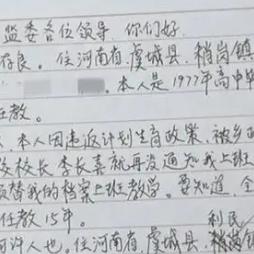 监委各位领导、你们好
存良。住河南省、虞城县、稍岗镇
。本人是1977年高中毕
任教。
、本人因违返计划生育政策、被乡
校长李长喜就再没通知我上班
顶替我的档案上班教学。要知道、全
任教15年。
利民
何许人也。住河南省、虞城县、稍岗镇